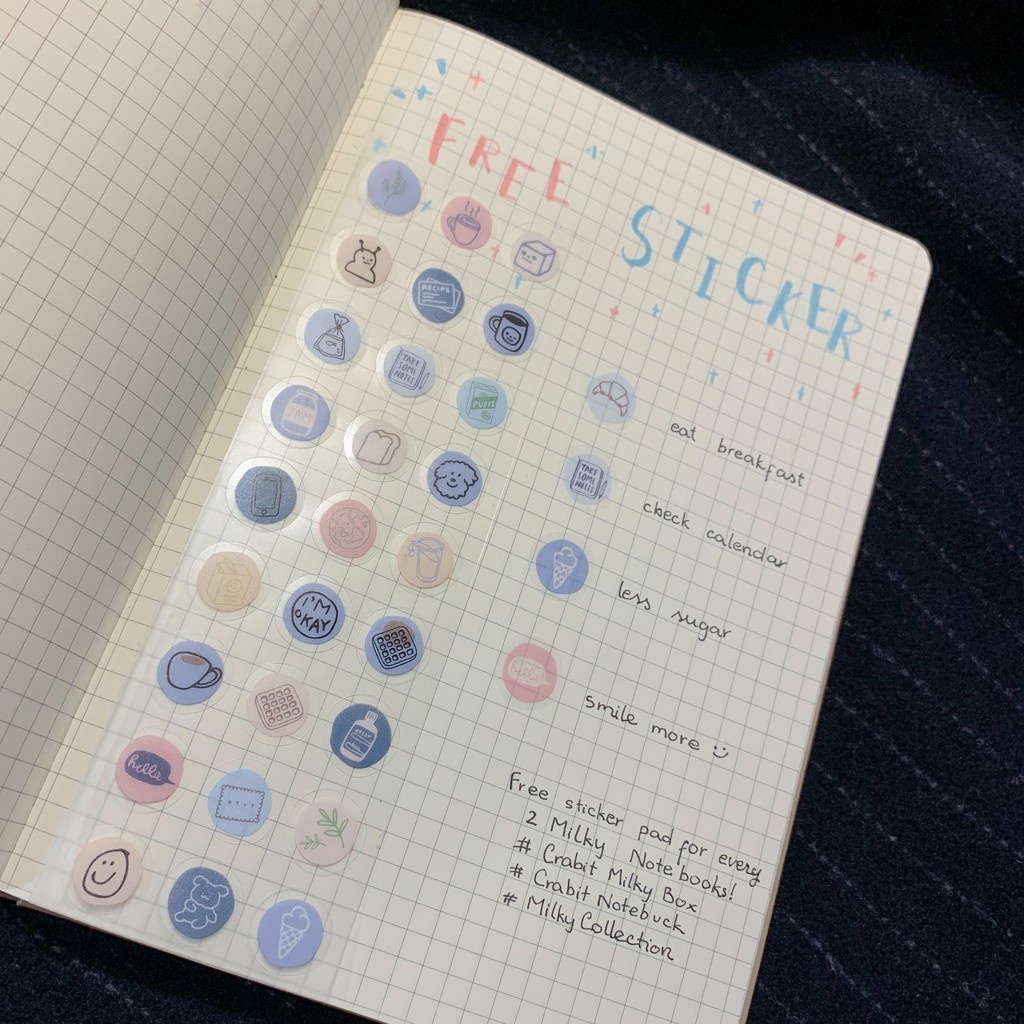 FREE STICKER
RECIPE
TAKE
SOME
NOTES
PUTTS
TAKE
SOME
NOTES
eat breakfast
check calendar
less sugar
I'M
OKAY
hello
smile more
hello
Free sticker pad for every
2 Milky Notebooks!
# Crabit Milky Box
# Crabit Notebuck
# Milky Collection